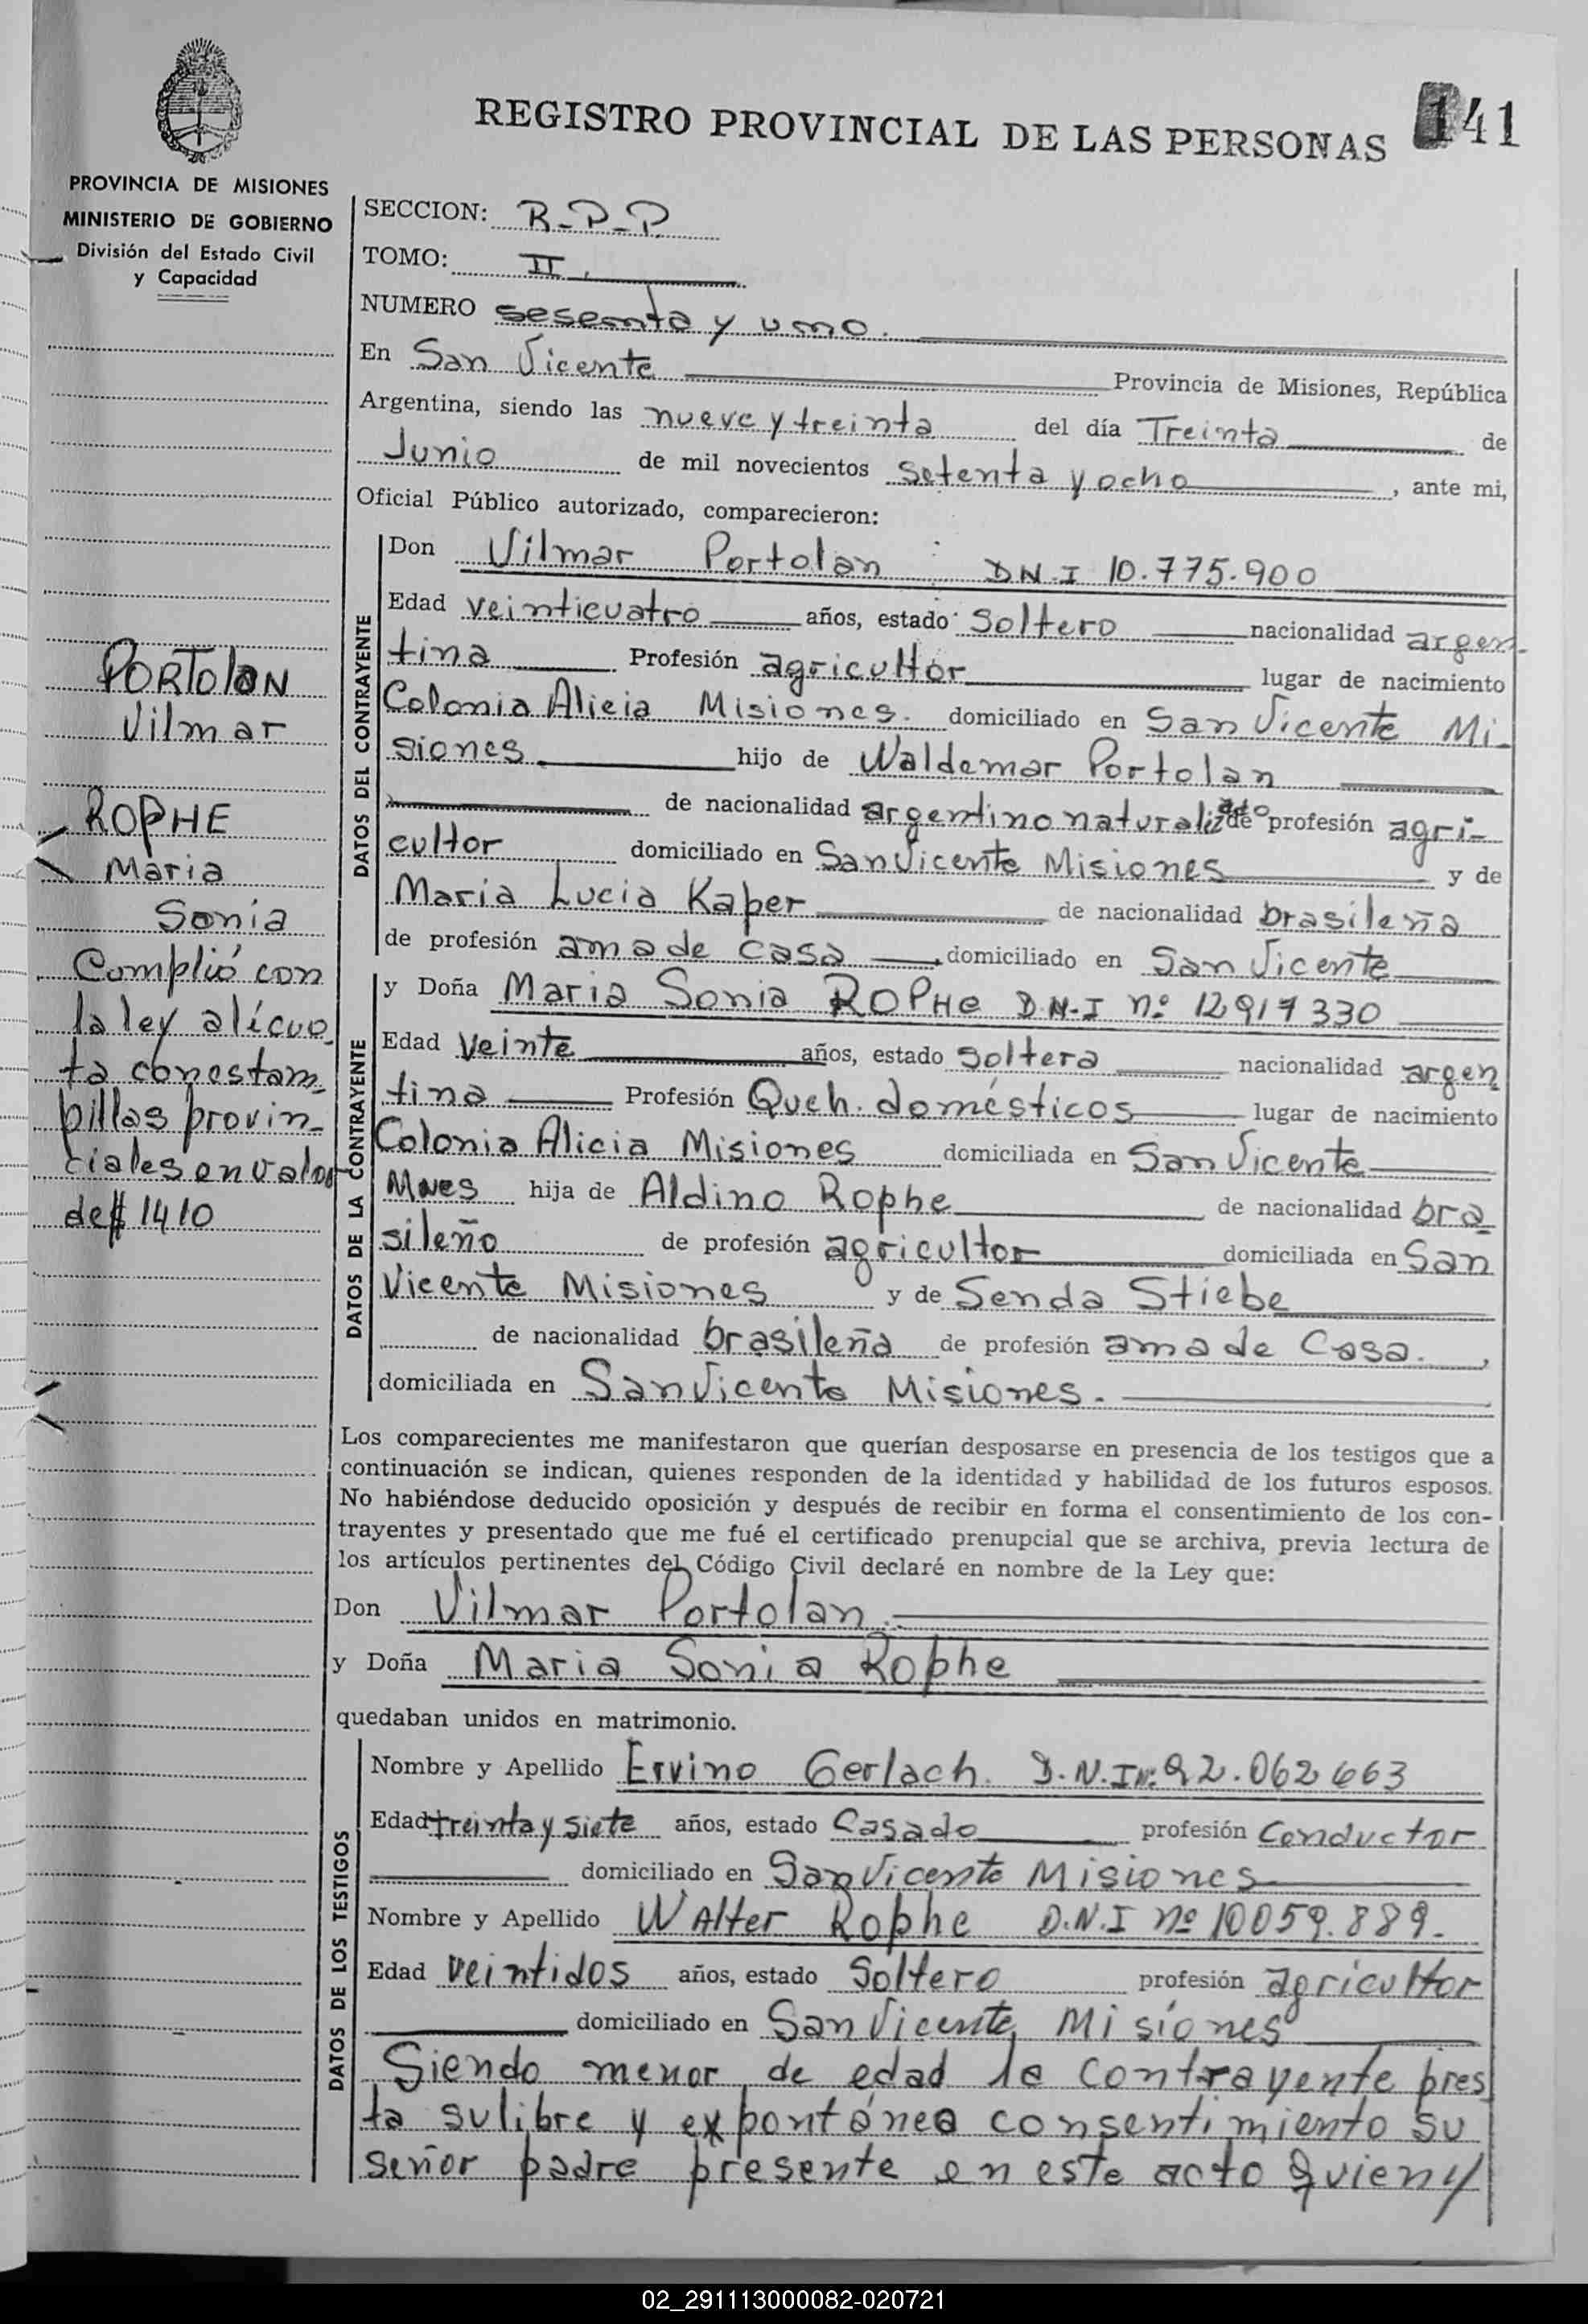 REGISTRO PROVINCIAL DE LAS PERSONAS 141
PROVINCIA DE MISIONES
MINISTERIO DE GOBIERNO
División del Estado Civil
y Capacidad
SECCION: R-P-P.
TOMO: II.
NUMERO sesenta y uno.
En San Vicente Provincia de Misiones, República
Argentina, siendo las nueve y treinta del día Treinta de
Junio de mil novecientos setenta y ocho, ante mi,
Oficial Público autorizado, comparecieron:
PORTOLAN
Vilmar
ROPHE
Maria
Sonia
Cumplió con
la ley alícuo_
ta con estam_
pillas provin_
ciales en valor
de $ 1410
DATOS DEL CONTRAYENTE
Don Vilmar Portolan D.N.I 10.775.900
Edad veinticuatro años, estado Soltero nacionalidad argen-
tina Profesión agricultor lugar de nacimiento
Colonia Alicia Misiones. domiciliado en San Vicente Mi-
siones. hijo de Waldemar Portolan
de nacionalidad argentino naturalizado de profesión agri-
cultor domiciliado en San Vicente Misiones y de
Maria Lucia Kaper de nacionalidad brasileña
de profesión ama de casa domiciliado en San Vicente
DATOS DE LA CONTRAYENTE
y Doña Maria Sonia ROPHE D.N-I nº 12917330
Edad Veinte años, estado soltera nacionalidad argen
tina Profesión Queh. domésticos lugar de nacimiento
Colonia Alicia Misiones domiciliada en San Vicente
Mnes hija de Aldino Rophe de nacionalidad bra_
sileño de profesión agricultor domiciliada en San
Vicente Misiones y de Senda Stiebe
de nacionalidad brasileña de profesión ama de Casa.,
domiciliada en San Vicente Misiones.
Los comparecientes me manifestaron que querían desposarse en presencia de los testigos que a
continuación se indican, quienes responden de la identidad y habilidad de los futuros esposos.
No habiéndose deducido oposición y después de recibir en forma el consentimiento de los con-
trayentes y presentado que me fué el certificado prenupcial que se archiva, previa lectura de
los artículos pertinentes del Código Civil declaré en nombre de la Ley que:
Don Vilmar Portolan.
y Doña Maria Sonia Rophe
quedaban unidos en matrimonio.
DATOS DE LOS TESTIGOS
Nombre y Apellido Ervino Gerlach. D.N.I Nº 92.062663
Edad treinta y siete años, estado Casado profesión Conductor
domiciliado en San Vicente Misiones
Nombre y Apellido WAlter Rophe D.N.I nº 10059.889.
Edad veintidos años, estado Soltero profesión agricultor
domiciliado en San Vicente Misiones
Siendo menor de edad la contrayente pres
ta su libre y expontánea consentimiento su
señor padre presente en este acto quien y
02_291113000082-020721